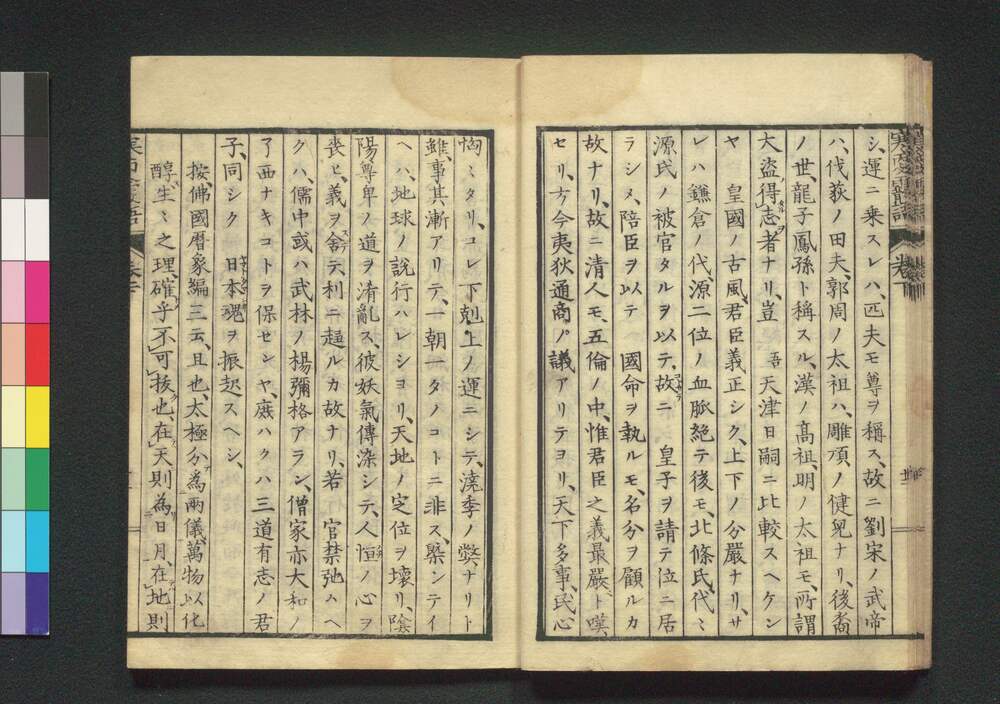 シ、運ニ乗スレハ、匹夫モ尊ヲ稱ス、故ニ劉宋ノ武帝
ハ、伐荻ノ田夫、郭周ノ太祖ハ、雕項ノ健兒ナリ、後裔
ノ世、龍子鳳孫ト稱スル、漢ノ高祖、明ノ太祖モ、所謂
大盗得志者ナリ、豈　吾　天津日嗣ニ比較スヘケン
ヤ　皇國ノ古風、君臣義正シク、上下ノ分嚴ナリ、サ
レハ鎌倉ノ代、源二位ノ血脈絶テ後モ、北條氏、代々
源氏ノ被官タルヲ以テ、故ニ　皇子ヲ請テ位ニ居
ラシメ、陪臣ヲ以テ　國命ヲ執ルモ、名分ヲ顧ルカ
故ナリ、故ニ清人モ、五倫ノ中、惟君臣之義最嚴、ト嘆
セリ、方今夷狄通商ノ議アリテヨリ、天下多事、民心
恟々タリ、コレ下剋上ノ運ニシテ、澆季ノ弊ナリト
雖、事其漸アリテ、一朝一夕ノコトニ非ス、槩シテイ
ヘハ、地球ノ説行ハレシヨリ、天地ノ定位ヲ壊リ、陰
陽尊卑ノ道ヲ淆亂ス、彼妖氣傳染シテ、人恒ノ心ヲ
喪ヒ、義ヲ舎テ、利ニ趨ルカ故ナリ、若　官禁弛ムヘ
クハ、儒中或ハ武林ノ楊彌格アラン、僧家亦大和ノ
了西ナキコトヲ保セシヤ、庶ハクハ三道有志ノ君
子、同シク　日本魂ヲ振起スヘシ、
按、佛國暦象編三云、且也、太極分為兩儀、萬物以化
醇、生々之理、確乎不可拔也、在天則為日月、在地則